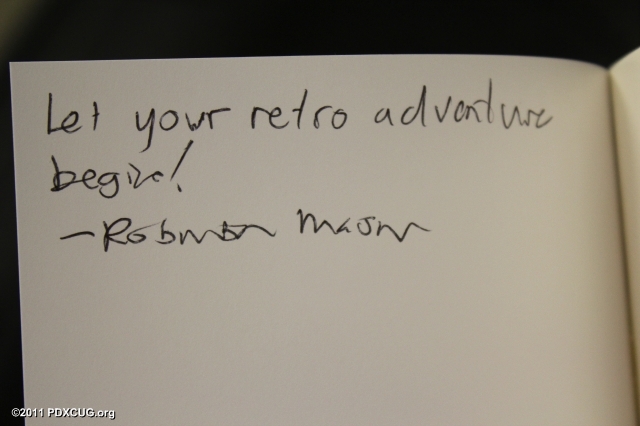 Let your retro adventure
begin!
- Robinson Mason
©2011 PDXCUG.org